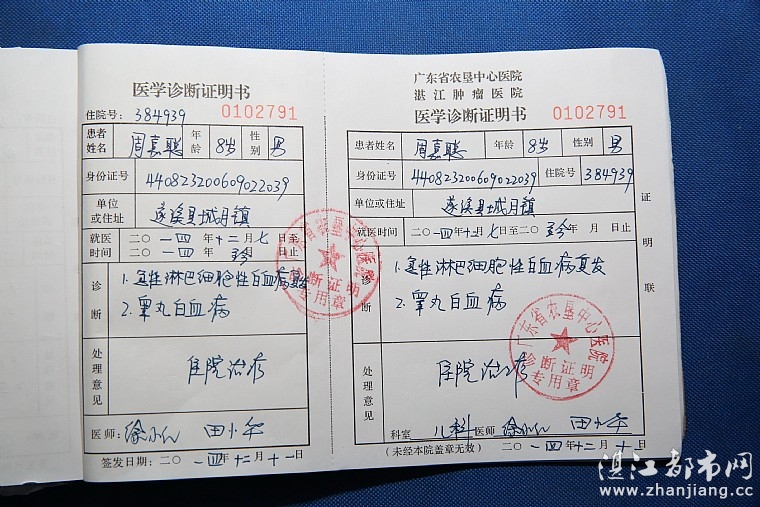 医学诊断证明书
住院号: 384939 0102791
患者姓名 周嘉聪 年龄 8岁 性别 男
身份证号 440823200609022039
单位或住址 遂溪县城月镇
就医时间 二〇一四年十二月七日至
二〇一四年 月 日止
诊断
1.急性淋巴细胞性白血病复发
2.睾丸白血病
处理意见
住院治疗
医师: 徐 田
签发日期: 二〇一四年十二月十一日
广东省农垦中心医院
湛江肿瘤医院
医学诊断证明书 0102791
患者姓名 周嘉聪 年龄 8岁 性别 男
身份证号 440823200609022039 住院号 384939
单位或住址 遂溪县城月镇
就医时间 二〇一四年十二月七日至二〇 年 月 日止
诊断
1.急性淋巴细胞性白血病复发
2.睾丸白血病
处理意见
住院治疗
科室 儿科 医师 徐 田
(未经本院盖章无效) 二〇一四年十二月十 日
证明联
广东省农垦中心医院
诊断证明
专用章
广东省农垦中心医院
诊断证明
专用章
湛江都市网
www.zhanjiang.cc